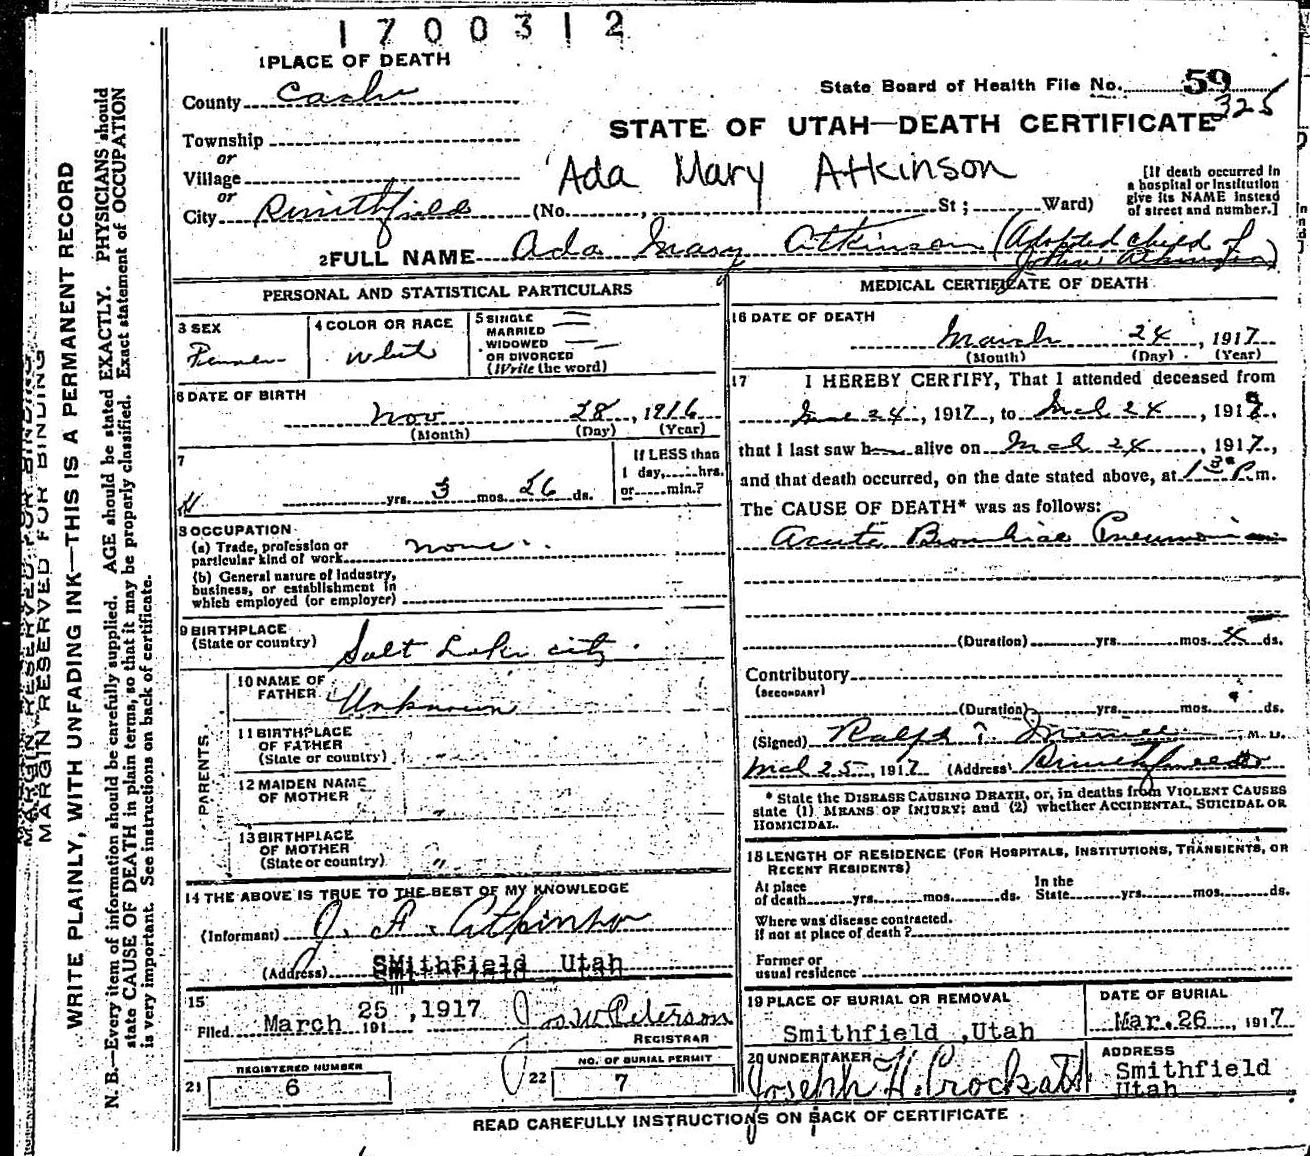 1700312
1 PLACE OF DEATH
County Cache
State Board of Health File No. 59
325
STATE OF UTAH—DEATH CERTIFICATE
Township
or
Village
or
City Smithfield (No. , St ; Ward)
Ada Mary Atkinson
[If death occurred in
a hospital or institution
give its NAME instead
of street and number.]
2 FULL NAME Ada Mary Atkinson (Adopted child of
John Atkinson)
PERSONAL AND STATISTICAL PARTICULARS
3 SEX
Female
4 COLOR OR RACE
White
5 SINGLE
MARRIED
WIDOWED
OR DIVORCED
(Write the word)
6 DATE OF BIRTH
Nov 28, 1916
(Month) (Day) (Year)
7
yrs. 3 mos. 26 ds.
If LESS than
1 day, hrs.
or min.?
8 OCCUPATION
(a) Trade, profession or
particular kind of work none
(b) General nature of Industry,
business, or establishment in
which employed (or employer)
9 BIRTHPLACE
(State or country) Salt Lake City
PARENTS.
10 NAME OF
FATHER Unknown
11 BIRTHPLACE
OF FATHER
(State or country) "
12 MAIDEN NAME
OF MOTHER "
13 BIRTHPLACE
OF MOTHER
(State or country) "
14 THE ABOVE IS TRUE TO THE BEST OF MY KNOWLEDGE
(Informant) J. A. Atkinson
(Address) SMithfield Utah
15
Filed March 25, 1917 191 Jos W Peterson
REGISTRAR
21 REGISTERED NUMBER
6
22 NO. OF BURIAL PERMIT
7
MEDICAL CERTIFICATE OF DEATH
16 DATE OF DEATH
March 24, 1917
(Month) (Day) (Year)
17 I HEREBY CERTIFY, That I attended deceased from
24, 1917, to Mch 24, 1917,
that I last saw h alive on Mch 24, 1917,
and that death occurred, on the date stated above, at P.m.
The CAUSE OF DEATH* was as follows:
Acute Bronchial Pneumonia
(Duration) yrs. mos. ds.
Contributory
(SECONDARY)
(Duration) yrs. mos. ds.
(Signed) Ralph T. M. D.
Mch 25, 1917 (Address) Smithfield
* State the DISEASE CAUSING DEATH, or, in deaths from VIOLENT CAUSES
state (1) MEANS OF INJURY; and (2) whether ACCIDENTAL, SUICIDAL OR
HOMICIDAL.
18 LENGTH OF RESIDENCE (FOR HOSPITALS, INSTITUTIONS, TRANSIENTS, OR
RECENT RESIDENTS)
At place
of death yrs. mos. ds.
In the
State yrs. mos. ds.
Where was disease contracted.
if not at place of death?
Former or
usual residence
19 PLACE OF BURIAL OR REMOVAL
Smithfield ,Utah
DATE OF BURIAL
Mar. 26, 1917
20 UNDERTAKER
Joseph H. Crockett
ADDRESS
Smithfield
Utah
READ CAREFULLY INSTRUCTIONS ON BACK OF CERTIFICATE
MARGIN RESERVED FOR BINDING
MARGIN RESERVED FOR BINDING
WRITE PLAINLY, WITH UNFADING INK—THIS IS A PERMANENT RECORD
N. B.—Every item of information should be carefully supplied. AGE should be stated EXACTLY. PHYSICIANS should
state CAUSE OF DEATH in plain terms, so that it may be properly classified. Exact statement of OCCUPATION
is very important. See instructions on back of certificate.